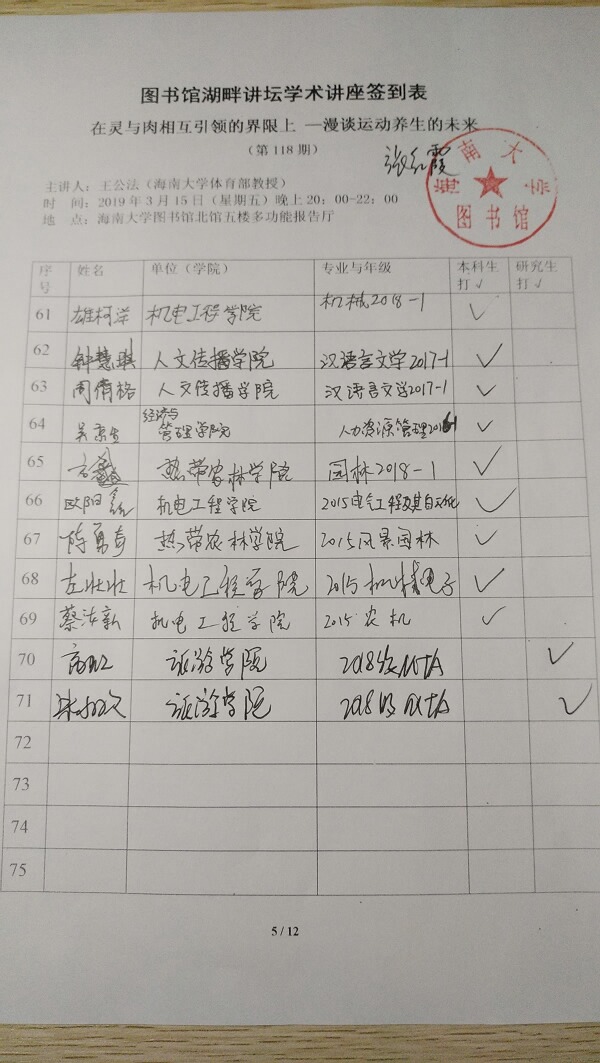 图书馆湖畔讲坛学术讲座签到表
在灵与肉相互引领的界限上 —漫谈运动养生的未来
（第 118 期）
张红霞
海南大学
图书馆
主讲人：王公法（海南大学体育部教授）
时 间：2019 年 3 月 15 日（星期五）晚上 20：00-22：00
地 点：海南大学图书馆北馆五楼多功能报告厅
序号 姓名 单位（学院） 专业与年级 本科生打√ 研究生打√
61 雄柯洋 机电工程学院 机械2018-1 √
62 钟慧琪 人文传播学院 汉语言文学2017-1 √
63 周倩格 人文传播学院 汉语言文学2017-1 √
64 经济与管理学院 人力资源管理 √
65 热带农林学院 园林2018-1 √
66 欧阳 机电工程学院 2015电气工程及其自动化 √
67 陈勇奇 热带农林学院 2015风景园林 √
68 左壮壮 机电工程学院 2015机械电子 √
69 蔡沛新 机电工程学院 2015农机 √
70 旅游学院 2018级MTA √
71 旅游学院 2018级MTA √
72
73
74
75
5 / 12